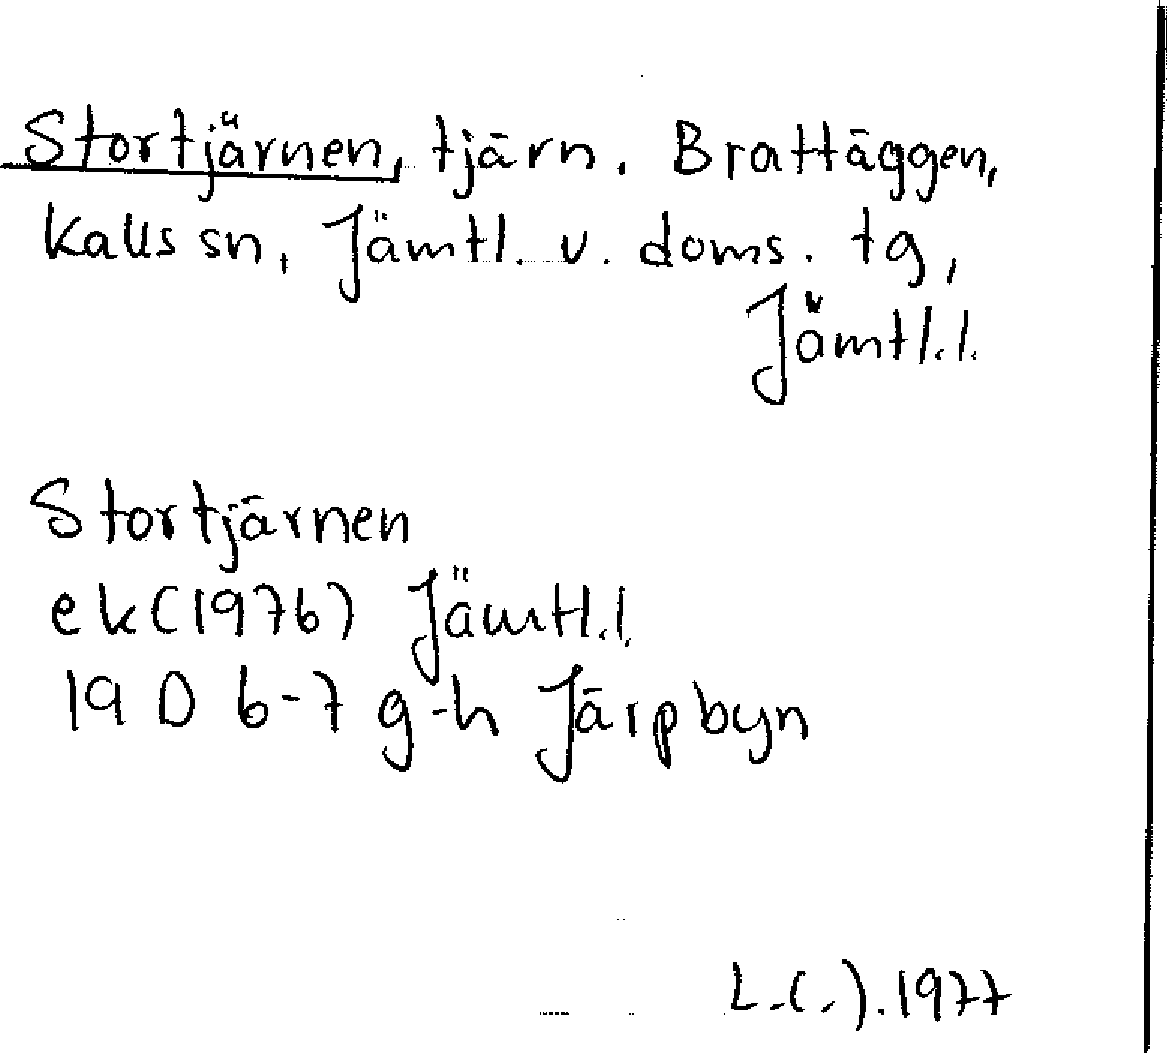 Stortjärnen, tjärn. Brattäggen,
Kalls sn, Jämtl. v. doms. tg,
Jämtl.l.
Stortjärnen
ek (1976) Jämtl.l.
19 D 6-7 g-h Järpbyn
L.(-).1977